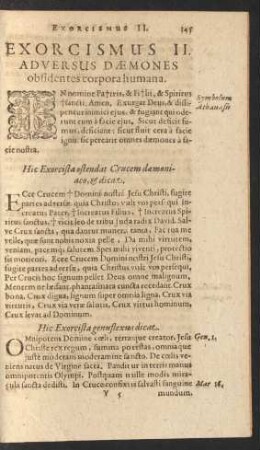 EXORCISMUS II. 345
EXORCISMUS II.
ADVERSUS DÆMONES
obsidentes corpora humana.
IN nomine Pa†tris, & Fi†lii, & Spiritus
†sancti, Amen. Exurgat Deus, & dissi-
pentur inimici ejus, & fugiant qui ode-
runt eum à facie ejus, Sicut deficit fu-
mus, deficiant: sicut fluit cera à facie
ignis: sic pereant omnes dæmones à fa-
cie nostra.
Symbolum
Athanasii
Hic Exorcista ostendat Crucem dæmoni-
aco, & dicat.
ECce Crucem † Domini nostri Jesu Christi, fugite
partes adversæ: quia Christus vult vos
increatus Pater, † Increatus Filius, † Increatus Spiri-
ritus Sanctus, † vicit leo de tribu Juda radix David. Sal-
ve Crux sancta, quæ dantur munera, tanta, Fac tua me
velle, que sunt nobis noxia pelle. Da mihi virtutem,
veniam, pacemque salutem. Spes mihi virens, protectio
sis moriens. Ecce Crucem Domini nostri Jesu Christi,
fugite partes adversæ, quia Christus vult vos
Per Crucis hoc signum pellet Deus omne malignum,
Crux
bona, Crux digna, lignum super omnia ligna, Crux via
virtutis, Crux vera salutis, Crux virtus hominum, Crux
levat ad Dominum.
Hic Exorcista genuflexus dicat.
OMnipotens Domine cœli, terræque creator, Jesu
Christe rex regum, summa potestas, omnia que
justè moderans moderamine sancto. De cœlis ve-
niens natus de Virgine sacra. Pandit ur in terris manus
omnipotentis Olympi. Postquam mille modis mira-
cula sancta dedisti. In Cruce confixus salvasti sanguine
Gen. 1.
Mar 16.
Y 5 mundum.